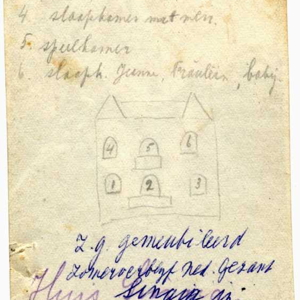 4 slaapkamer met wen.
5 speelkamer
6. slaapk. Jeanne, Fräulein, baby
4 5 6
1 2 3
z.g. gemeubileerd
zomerverblijf ned. Gezant
Huis Sinaia